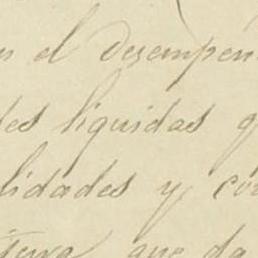 n el desempeñ
des liquidas q
lidades y co
que da